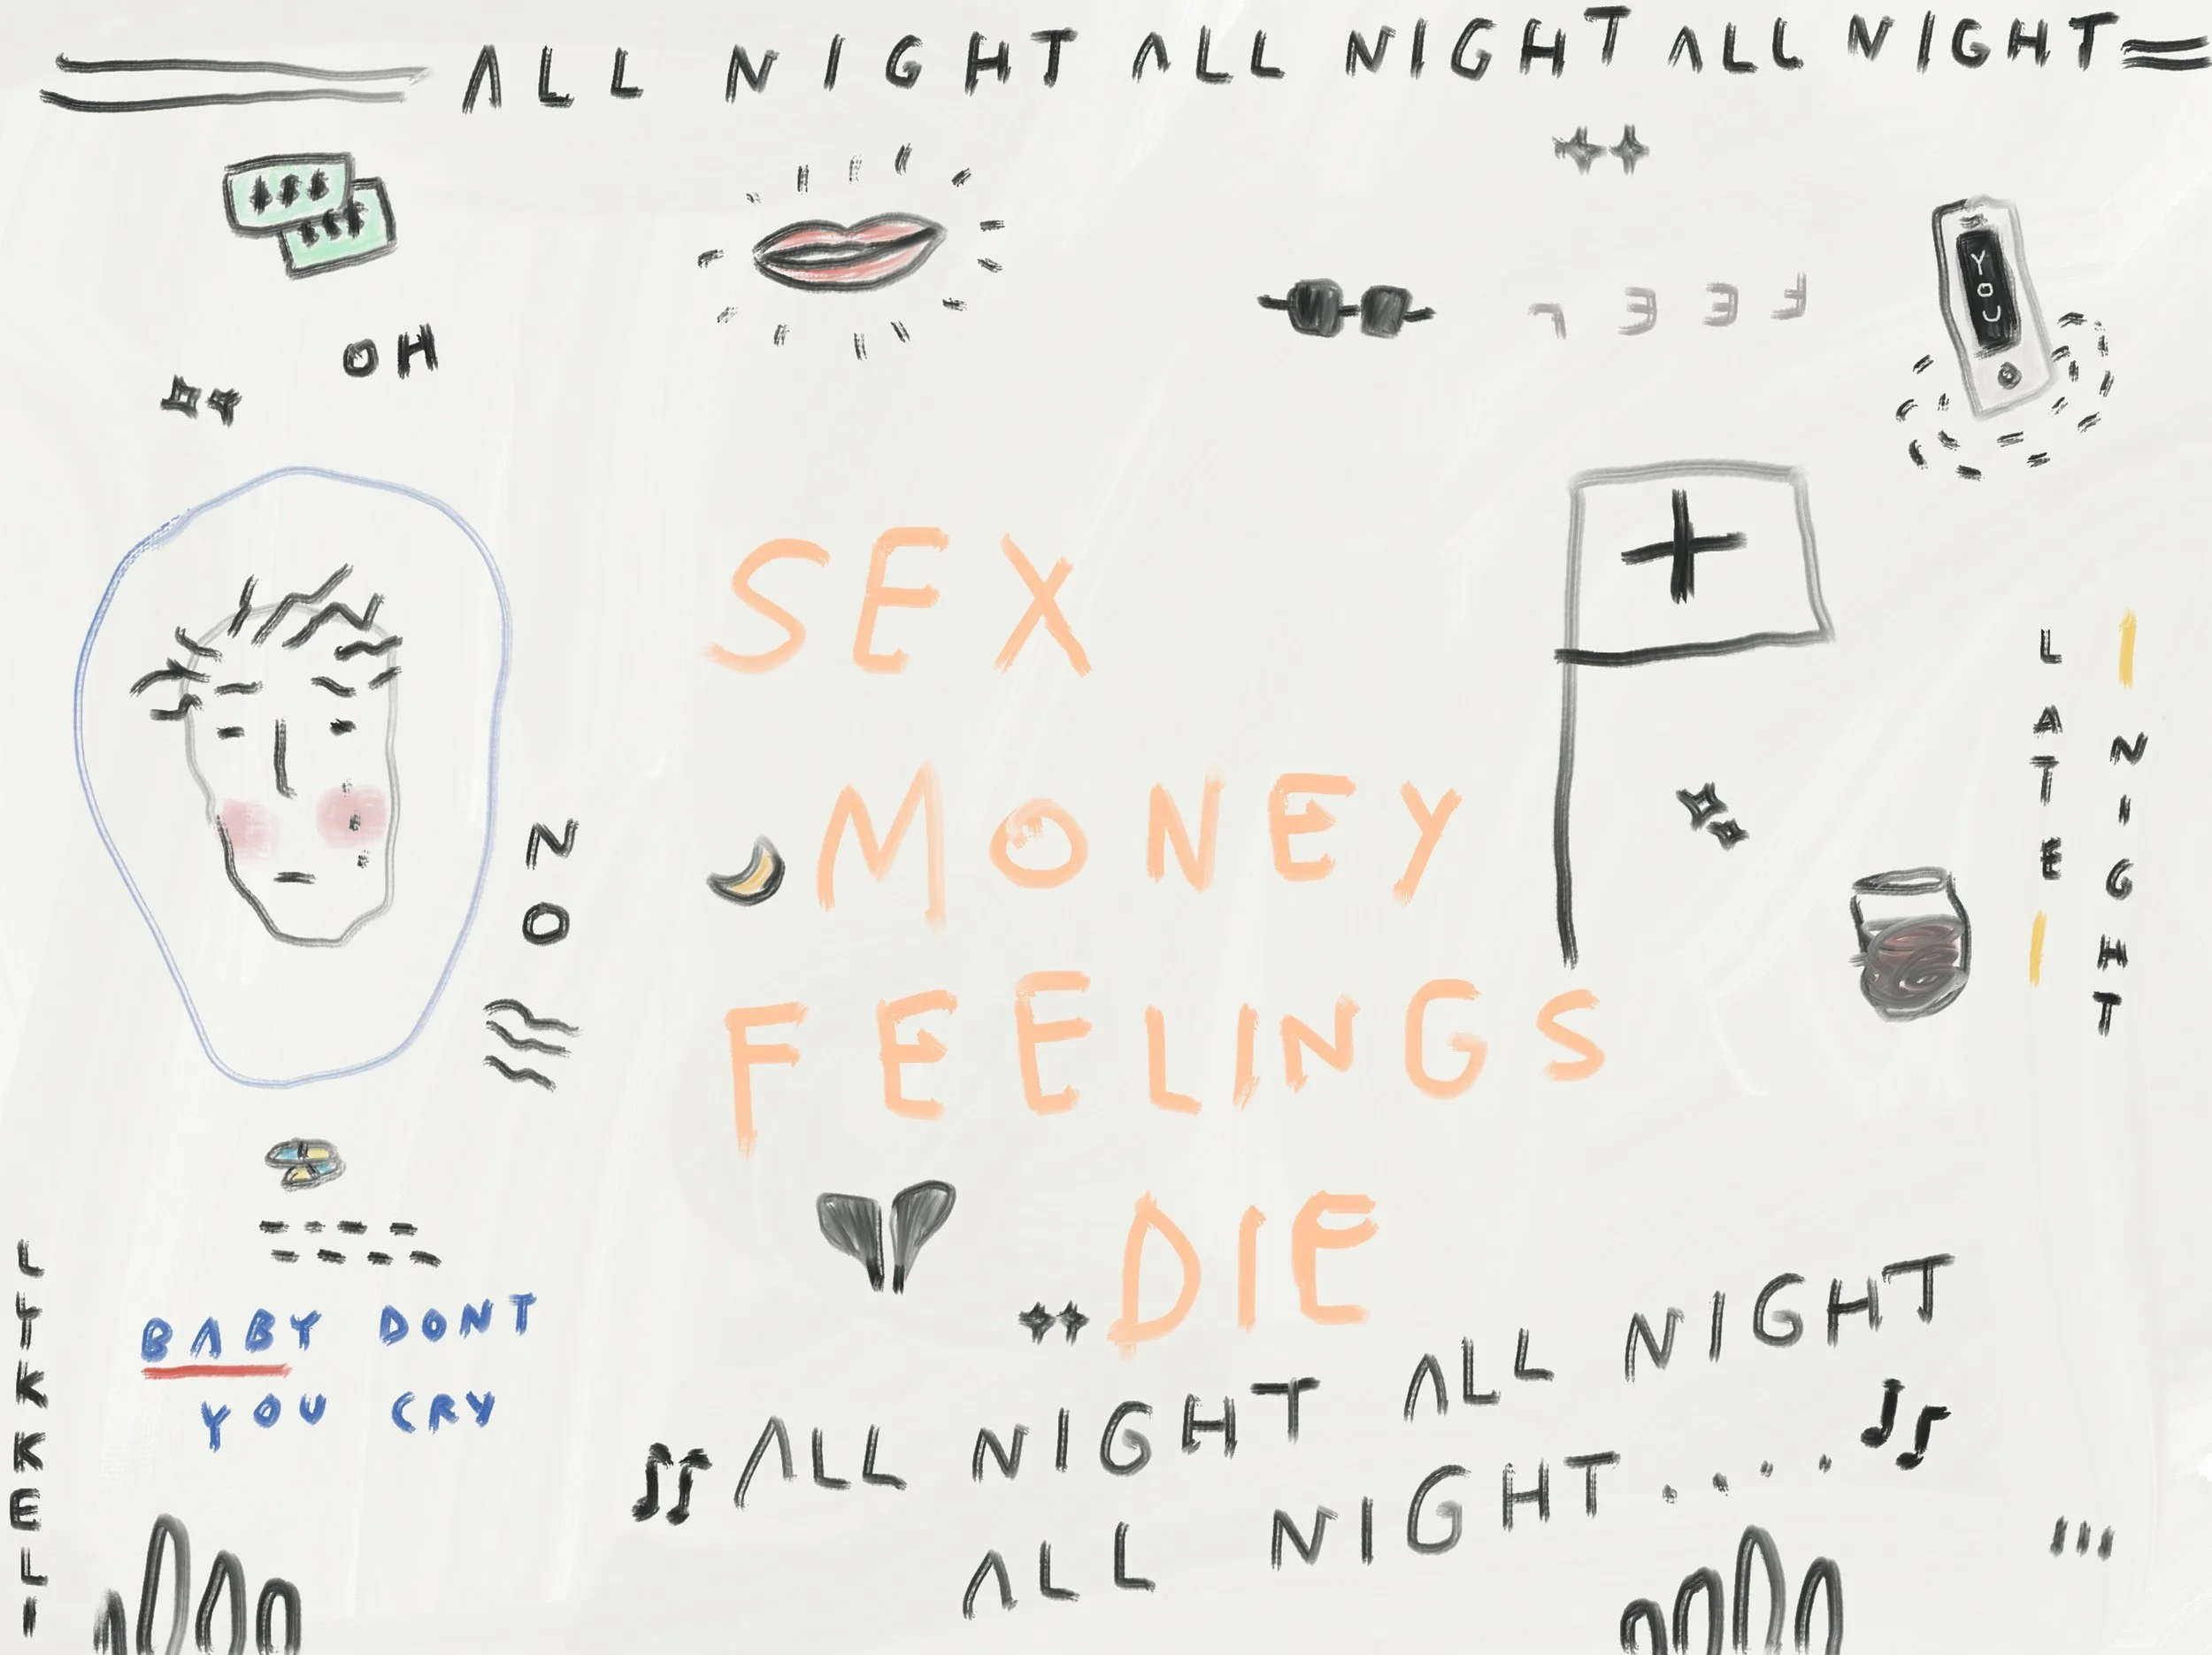 ALL NIGHT ALL NIGHT ALL NIGHT
$$$
$$$
OH
FEEL
YOU
SEX
MONEY
FEELINGS
DIE
NO
LATE
NIGHT
BABY DONT
YOU CRY
LYKKELI
ALL NIGHT ALL NIGHT
ALL NIGHT....